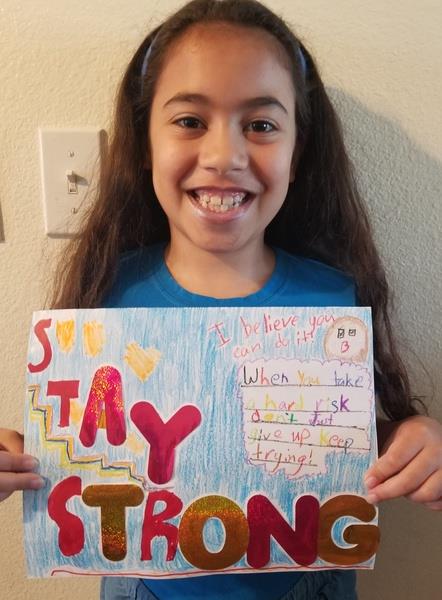 I believe you
can do it!
STAY
When you take
a hard risk
don't just
give up keep
trying!
STRONG